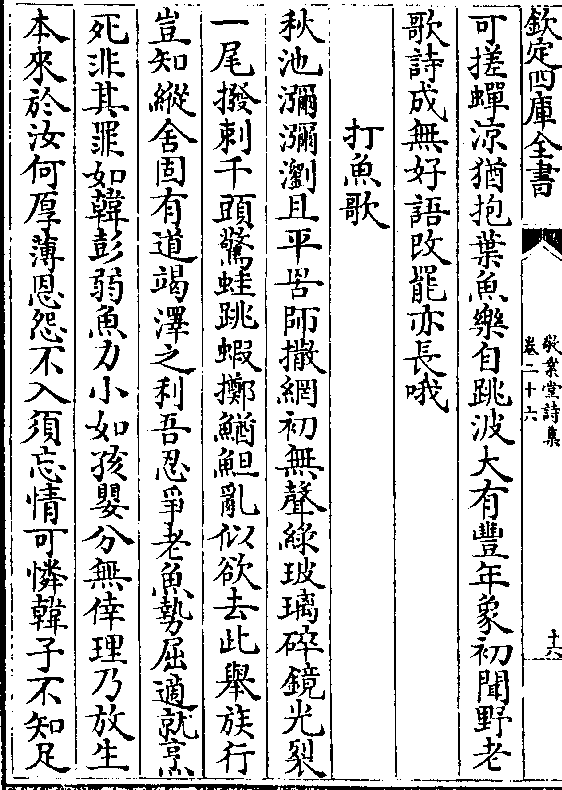 欽定四庫全書
敬業堂詩集
卷二十六
十六
可搓蟬涼猶抱葉魚樂自跳波大有豐年象初聞野老
歌詩成無好語改罷亦長哦
打魚歌
秋池瀰瀰瀏且平罟師撒網初無聲綠玻璃碎鏡光裂
一尾撥剌千頭驚蛙跳蝦擲鰌䱇亂似欲去此舉族行
豈知縱舍固有道竭澤之利吾忍爭老魚勢屈適就烹
死非其罪如韓彭弱魚力小如孩嬰分無倖理乃放生
本來於汝何厚薄恩怨不入須忘情可憐韓子不知足